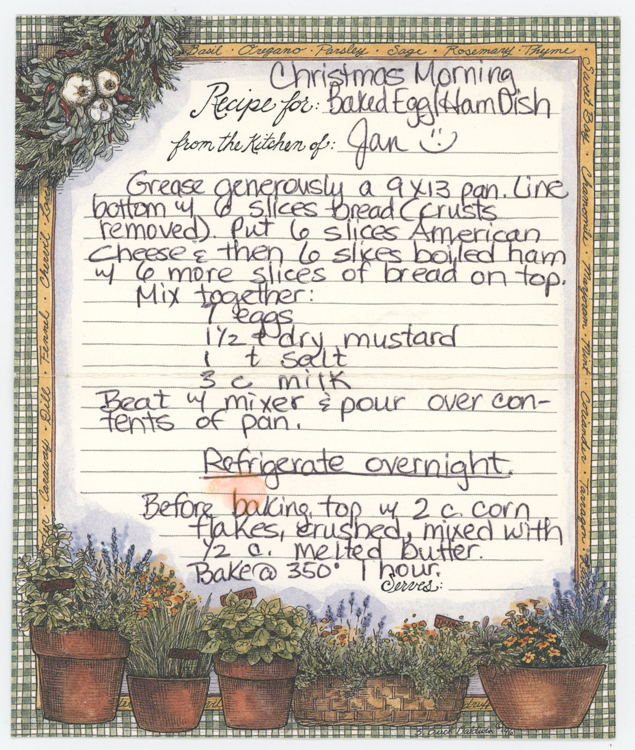 Basil · Oregano · Parsley · Sage · Rosemary · Thyme
Christmas Morning
Recipe for: Baked Egg/Ham Dish
from the Kitchen of: Jan
Grease generously a 9x13 pan. Line
bottom w/ 6 slices bread (crusts
removed). Put 6 slices American
Cheese & then 6 slices boiled ham
w/ 6 more slices of bread on top.
Mix together:
7 eggs
1 1/2 t dry mustard
1 t salt
3 c milk
Beat w/ mixer & pour over con-
tents of pan.
Refrigerate overnight.
Before baking, top w/ 2 c. corn
flakes, crushed, mixed with
1/2 c. melted butter.
Bake @ 350° 1 hour.
Serves:
Sweet Bay · Chamomile · Marjoram · Mint · Coriander · Tarragon
Caraway · Dill · Fennel · Chervil